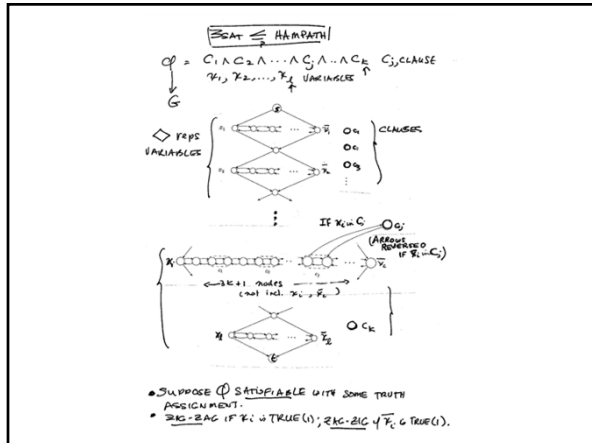 3SAT ≤p HAMPATH
φ = C1 ∧ C2 ∧ ··· ∧ Cj ∧ ·· ∧ Ck Cj, CLAUSE
x1, x2, ..., xℓ VARIABLES
G
s
CLAUSES
◇ reps
VARIABLES
...
...
IF xi in Cj
cj
(ARROWS
REVERSED
IF x̄i in Cj)
xi
x̄i
3k+1 nodes
(not incl. xi, x̄i)
xℓ
x̄ℓ
...
Ck
t
• SUPPOSE φ SATISFIABLE WITH SOME TRUTH
ASSIGNMENT.
• ZIG-ZAG IF xi is TRUE(1); ZAG-ZIG if x̄i is TRUE(1).